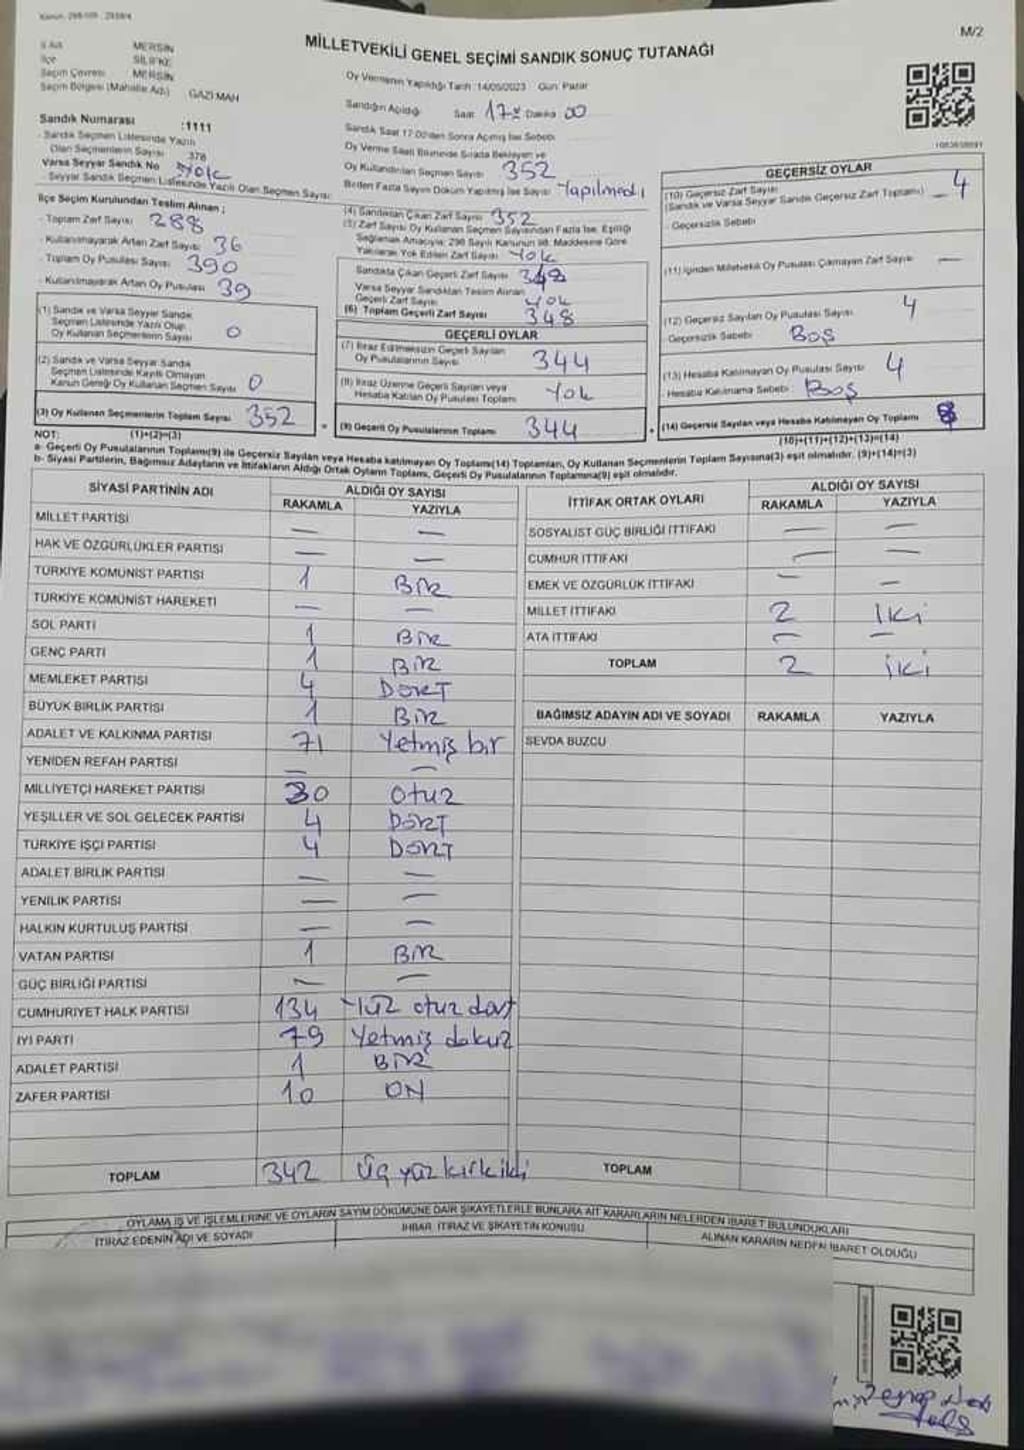 M/2
MİLLETVEKİLİ GENEL SEÇİMİ SANDIK SONUÇ TUTANAĞI
İl Adı MERSİN
İlçe SİLİFKE
Seçim Çevresi MERSİN
Seçim Bölgesi (Mahalle Adı) GAZİ MAH
Sandık Numarası :1111
Sandık Seçmen Listesinde Yazılı
Olan Seçmenlerin Sayısı 378
Varsa Seyyar Sandık No Yok
Seyyar Sandık Seçmen Listesinde Yazılı Olan Seçmen Sayısı
İlçe Seçim Kurulundan Teslim Alınan ;
Toplam Zarf Sayısı 288
Kullanılmayarak Artan Zarf Sayısı 36
Toplam Oy Pusulası Sayısı 390
Kullanılmayarak Artan Oy Pusulası 39
(1) Sandık ve Varsa Seyyar Sandık
Seçmen Listesinde Yazılı Olup
Oy Kullanan Seçmenlerin Sayısı 0
(2) Sandık ve Varsa Seyyar Sandık
Seçmen Listesinde Kayıtlı Olmayan
Kanun Gereği Oy Kullanan Seçmen Sayısı 0
(3) Oy Kullanan Seçmenlerin Toplam Sayısı 352
(1)+(2)=(3)
Oy Vermenin Yapıldığı Tarih : 14/05/2023 Gün: Pazar
Sandığın Açıldığı Saat 17 Dakika 00
Sandık Saat 17:00'den Sonra Açılmış İse Sebebi
Oy Verme Saati Bitiminde Sırada Bekleyen ve
Oy Kullandırılan Seçmen Sayısı 352
Birden Fazla Sayım Döküm Yapılmış İse Sayısı Yapılmadı
(4) Sandıktan Çıkan Zarf Sayısı 352
(5) Zarf Sayısı Oy Kullanan Seçmen Sayısından Fazla İse, Eşitliği
Sağlamak Amacıyla; 298 Sayılı Kanunun 98. Maddesine Göre
Yakılarak Yok Edilen Zarf Sayısı Yok
Sandıkta Çıkan Geçerli Zarf Sayısı 348
Varsa Seyyar Sandıktan Teslim Alınan
Geçerli Zarf Sayısı Yok
(6) Toplam Geçerli Zarf Sayısı 348
GEÇERLİ OYLAR
(7) İtiraz Edilmeksizin Geçerli Sayılan
Oy Pusulalarının Sayısı 344
(8) İtiraz Üzerine Geçerli Sayılan veya
Hesaba Katılan Oy Pusulası Toplamı Yok
(9) Geçerli Oy Pusulalarının Toplamı 344
GEÇERSİZ OYLAR
(10) Geçersiz Zarf Sayısı
(Sandık ve Varsa Seyyar Sandık Geçersiz Zarf Toplamı) 4
Geçersizlik Sebebi
(11) İçinden Milletvekili Oy Pusulası Çıkmayan Zarf Sayısı —
(12) Geçersiz Sayılan Oy Pusulası Sayısı 4
Geçersizlik Sebebi Boş
(13) Hesaba Katılmayan Oy Pusulası Sayısı 4
Hesaba Katılmama Sebebi Boş
(14) Geçersiz Sayılan veya Hesaba Katılmayan Oy Toplamı 8
(10)+(11)+(12)+(13)=(14)
NOT:
a- Geçerli Oy Pusulalarının Toplamı(9) ile Geçersiz Sayılan veya Hesaba katılmayan Oy Toplamı(14) Toplamları, Oy Kullanan Seçmenlerin Toplam Sayısına(3) eşit olmalıdır. (9)+(14)=(3)
b- Siyasi Partilerin, Bağımsız Adayların ve İttifakların Aldığı Ortak Oyların Toplamı, Geçerli Oy Pusulalarının Toplamına(9) eşit olmalıdır.
SİYASİ PARTİNİN ADI ALDIĞI OY SAYISI
RAKAMLA YAZIYLA
MİLLET PARTİSİ — —
HAK VE ÖZGÜRLÜKLER PARTİSİ — —
TÜRKİYE KOMÜNİST PARTİSİ 1 BİR
TÜRKİYE KOMÜNİST HAREKETİ — —
SOL PARTİ 1 BİR
GENÇ PARTİ 1 BİR
MEMLEKET PARTİSİ 4 DÖRT
BÜYÜK BİRLİK PARTİSİ 1 BİR
ADALET VE KALKINMA PARTİSİ 71 Yetmiş bir
YENİDEN REFAH PARTİSİ — —
MİLLİYETÇİ HAREKET PARTİSİ 30 otuz
YEŞİLLER VE SOL GELECEK PARTİSİ 4 DÖRT
TÜRKİYE İŞÇİ PARTİSİ 4 DÖRT
ADALET BİRLİK PARTİSİ — —
YENİLİK PARTİSİ — —
HALKIN KURTULUŞ PARTİSİ — —
VATAN PARTİSİ 1 BİR
GÜÇ BİRLİĞİ PARTİSİ — —
CUMHURİYET HALK PARTİSİ 134 Yüz otuz dört
İYİ PARTİ 79 Yetmiş dokuz
ADALET PARTİSİ 1 BİR
ZAFER PARTİSİ 10 ON
TOPLAM 342 Üç yüz kırk iki
İTTİFAK ORTAK OYLARI ALDIĞI OY SAYISI
RAKAMLA YAZIYLA
SOSYALİST GÜÇ BİRLİĞİ İTTİFAKI — —
CUMHUR İTTİFAKI — —
EMEK VE ÖZGÜRLÜK İTTİFAKI — —
MİLLET İTTİFAKI 2 İki
ATA İTTİFAKI — —
TOPLAM 2 iki
BAĞIMSIZ ADAYIN ADI VE SOYADI RAKAMLA YAZIYLA
SEVDA BUZCU
TOPLAM
OYLAMA İŞ VE İŞLEMLERİNE VE OYLARIN SAYIM DÖKÜMÜNE DAİR ŞİKAYETLERLE BUNLARA AİT KARARLARIN NELERDEN İBARET BULUNDUKLARI
İTİRAZ EDENİN ADI VE SOYADI
İHBAR, İTİRAZ VE ŞİKAYETİN KONUSU
ALINAN KARARIN NEDEN İBARET OLDUĞU